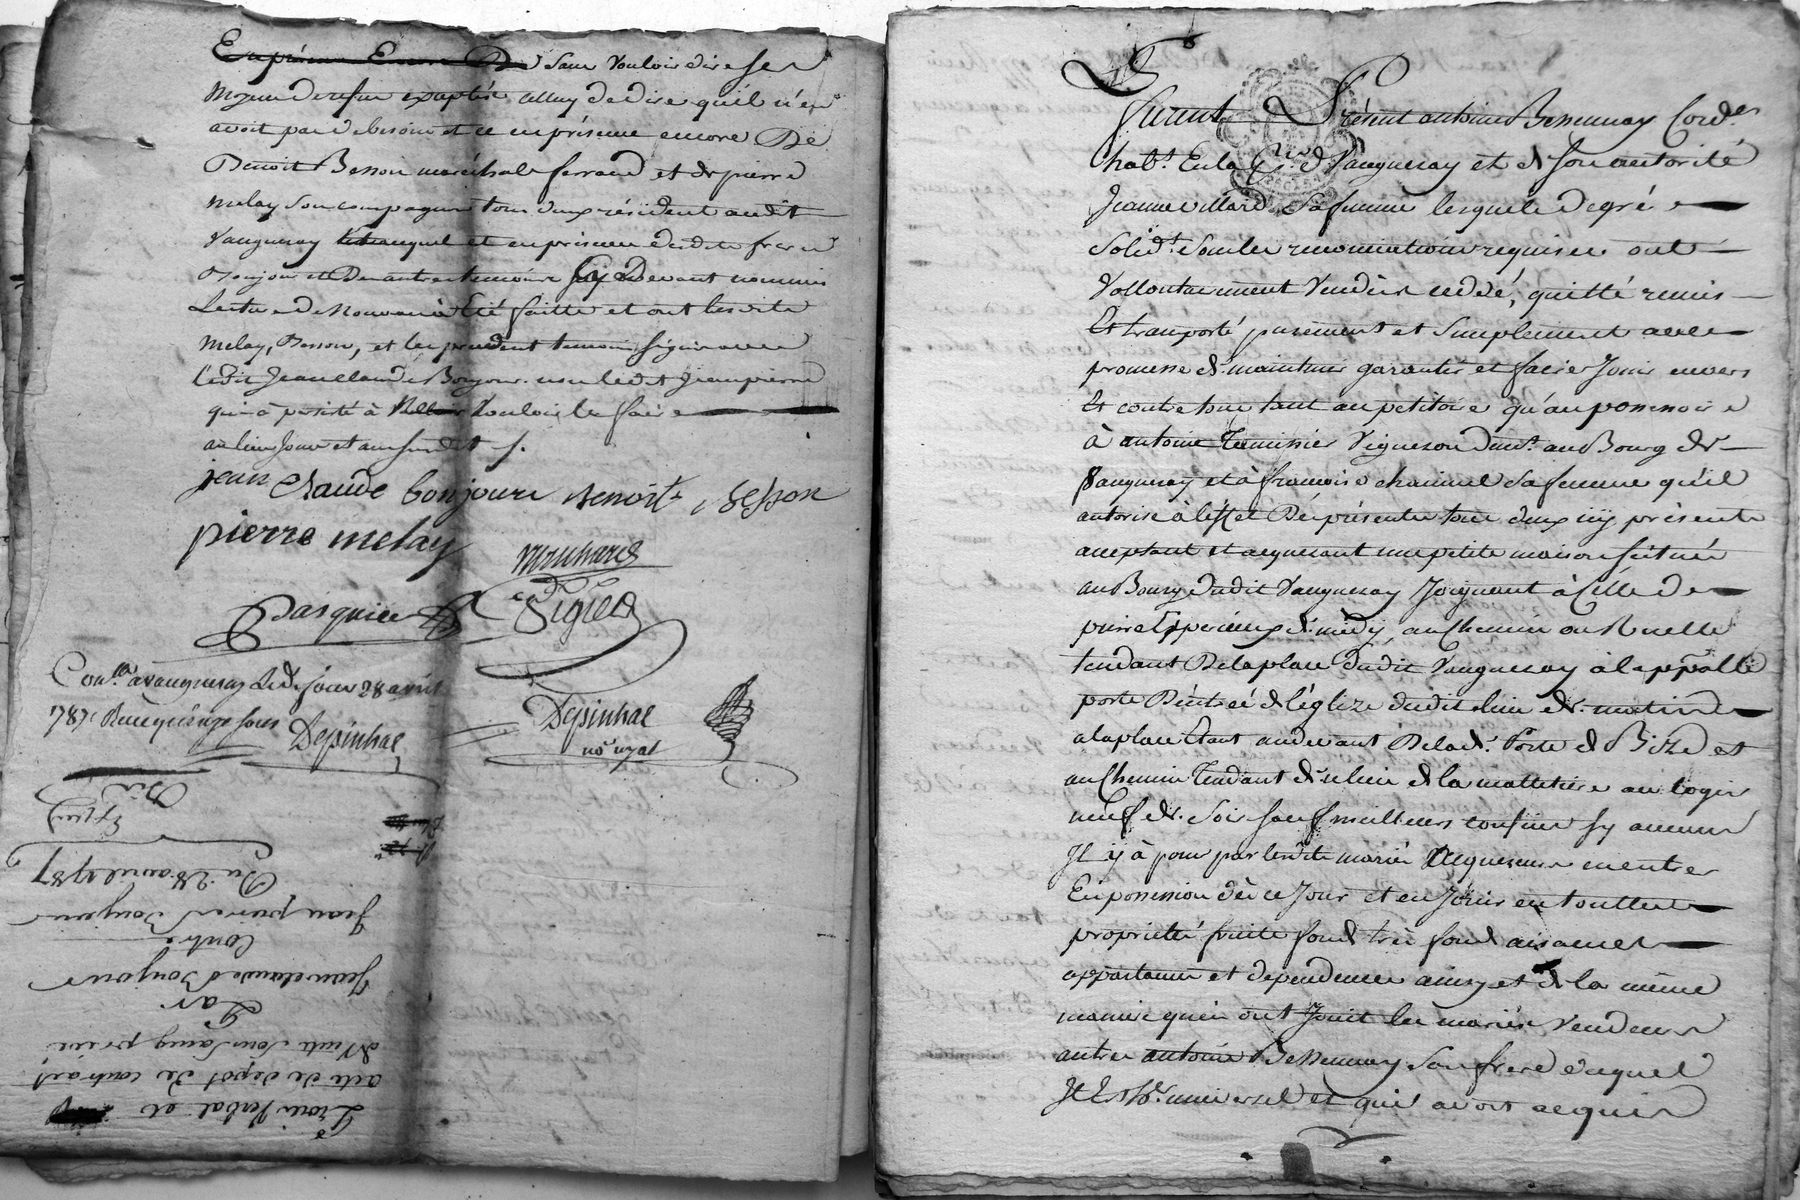 sans vouloir dire ses
moyens de refus excepté celluy de dire qu'il n'en
avoit pas de besoin et ce en présence encore De
Benoit Besson maréchal ferrand et de pierre
melay son compagnon tous deux résident audit
Vaugneray et en présence desdits freres
Bonjour et Des autres temoins Cy Devant nommés
Lecture de Nouveau à Eté faitte et ont lesdits
melay, Besson, et les temoins signé avec
Ledit Jean Claude Bonjour non ledit Jean pierre
qui à persisté à ne Vouloir le faire
au lieu jour et an susdit /.
jean Claude bonjour Benoit Besson
pierre melay
Pasquier
Con.lé à vaugneray Ledit jour 28 avril
1787, Reçu quinze sous Depinhac
Depinhac
no.re royal
Procès Verbal et
acte de dépôt de contrat
de Vente sous seing privé
Par
Jean claude Bonjour
Contre
Jean pierre Bonjour
Du 28 avril 1787
Exped
furent Présent antoine Bessenay Cord.er
hab.t En la p.sse de Vaugneray et de son authorité
Jeanne villard Sa femme lesquels de gré
Solid.t sous les renonciations requises ont
Vollontairement Vendus ceddé, quitté remis
Et transporté purement et Simplement avec
promesse de maintenir garentir et faire Jouir envers
Et contre tous tant au petitoire qu'au possessoire
à antoine Vigneron dem.t au Bourg de
Vaugneray et à françoise Sa femme qu'il
autorise à l'effet Des présentes tous deux icy présents
acceptant et acquerant une petite maison scituée
au Bourg dudit Vaugneray Joignant à Celle de
pierre de midy, au Chemin ou Ruelle
tendant De la place dudit Vaugneray à la appellé
porte D'entrée de l'églize dudit lieu de matin
a la place Etant au devant De lad.e Porte de Bize et
au Chemin Tendant du lieu de la malletiere au logis
neuf de Soir sauf meilleurs confins sy aucuns
Il y à pour par lesdits mariés acquereurs entrer
En possession dès ce Jour et en Jouir en toutte
propriété fruits fond très fond aisances
appartenances et dependances ainsy et de la même
maniere qu'en ont Jouit les mariés Vendeurs
autre antoine Bessenay Son frere duquel
Il Est h.er universel et qui avoit acquis